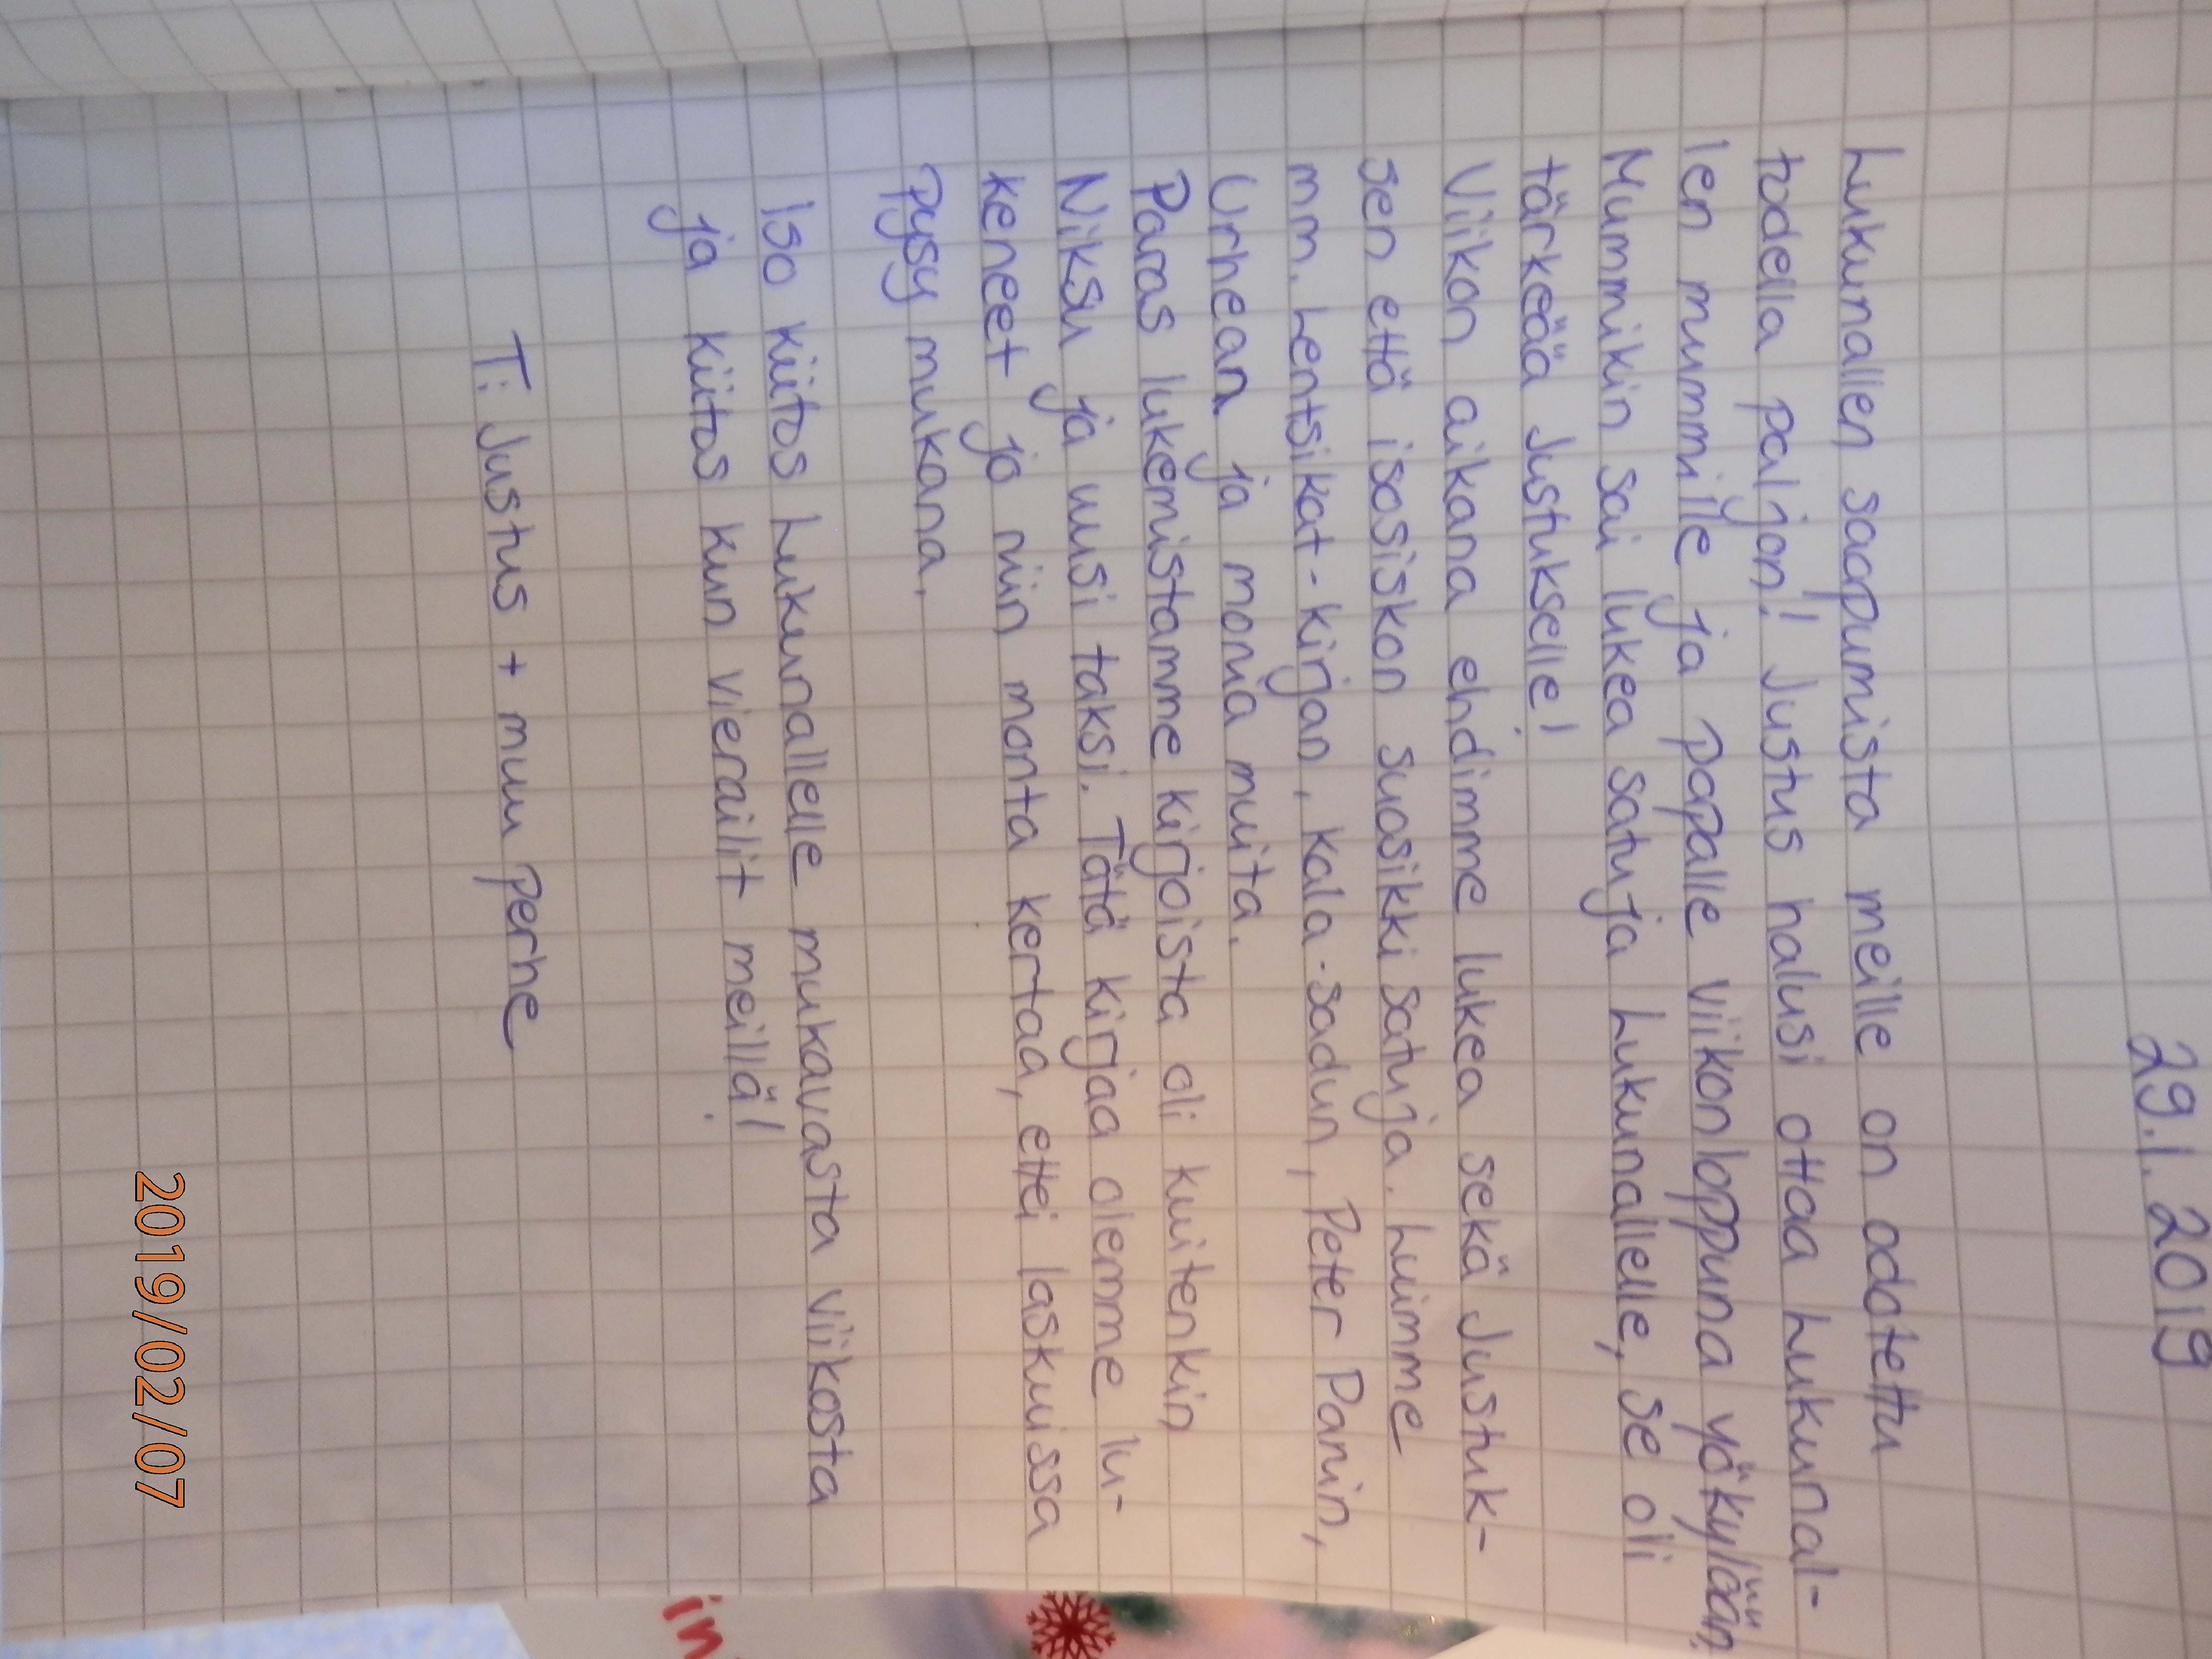 29.1.2019
Lukunallen saapumista meille on odotettu
todella paljon! Justus halusi ottaa Lukunal-
len mummille ja papalle viikonloppuna yökylään.
Mummikin sai lukea satuja Lukunallelle, se oli
tärkeää Justukselle!
Viikon aikana ehdimme lukea sekä Justuk-
sen että isosiskon suosikki satuja. Luimme
mm. Lentsikat-kirjan, Kala-sadun, Peter Panin,
Urhean ja monia muita.
Paras lukemistamme kirjoista oli kuitenkin
Niksu ja uusi taksi. Tätä kirjaa olemme lu-
keneet jo niin monta kertaa, ettei laskuissa
pysy mukana.
Iso kiitos Lukunallelle mukavasta viikosta
ja kiitos kun vierailit meillä!
T: Justus + muu perhe
2019/02/07
in